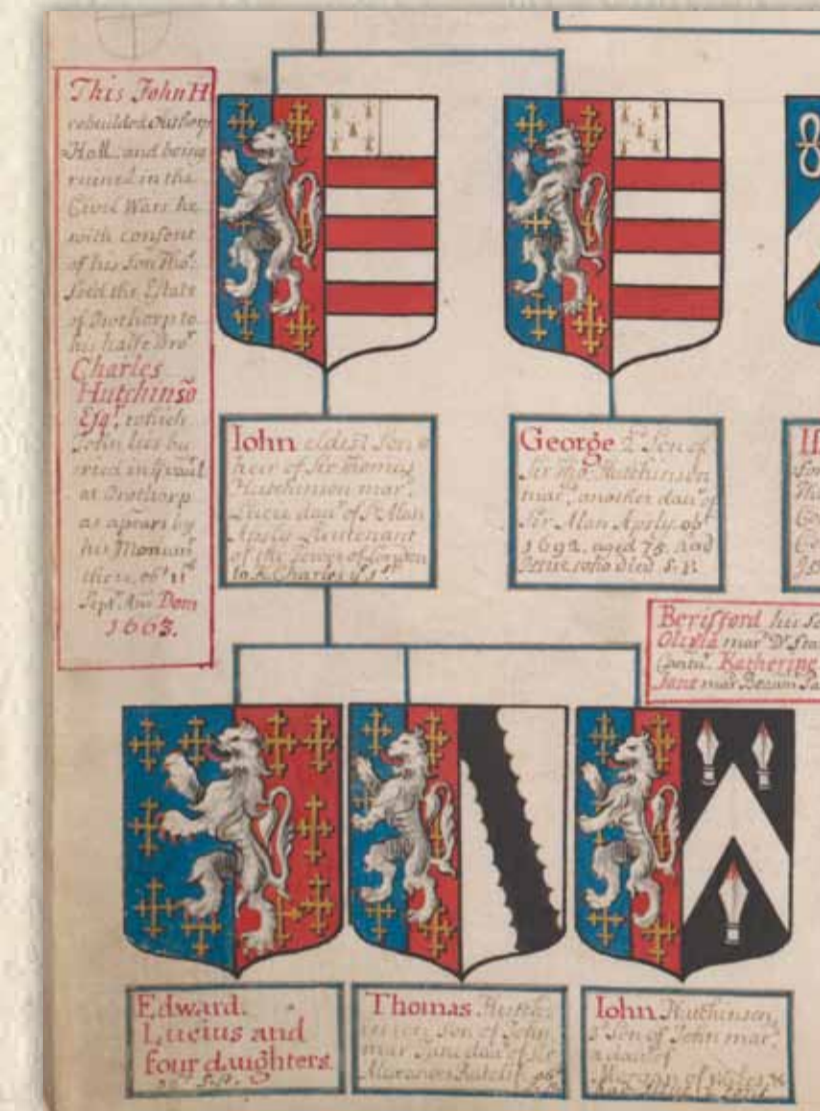 This John H
rebuilded Outhorp
Hall and being
ruined in the
Civil Wars he
with consent
of his Son Tho:
sold the Estate
of Owthorp to
his halfe Bro:
Charles
Hutchinso
Esqr. which
John lies bu
ried in
at Owthorp
as apears by
his Monum
there, obt 11
Sept. Ano Dom
1663.
Iohn eldest Son &
heir of Sir Thomas
Hutchinson mar.
Lucie dau of Sr Alan
Apsly Lieutenant
of the Tower of London
to K. Charles ye 1st
George 2d Son of
Sir Tho: Hutchinson
mar. another dau of
Sir Alan Apsly. ob
1692. aged 75. had
Issue who died S.P.
Berisford his
Olivia mar
Katherine
Jane mar
Edward.
Lucius and
four daughters.
Thomas
Son of John
mar. Jane dau of Sr
Alexander Ratclif
Iohn Hutchinson
2d Son of John mar.
a dau of